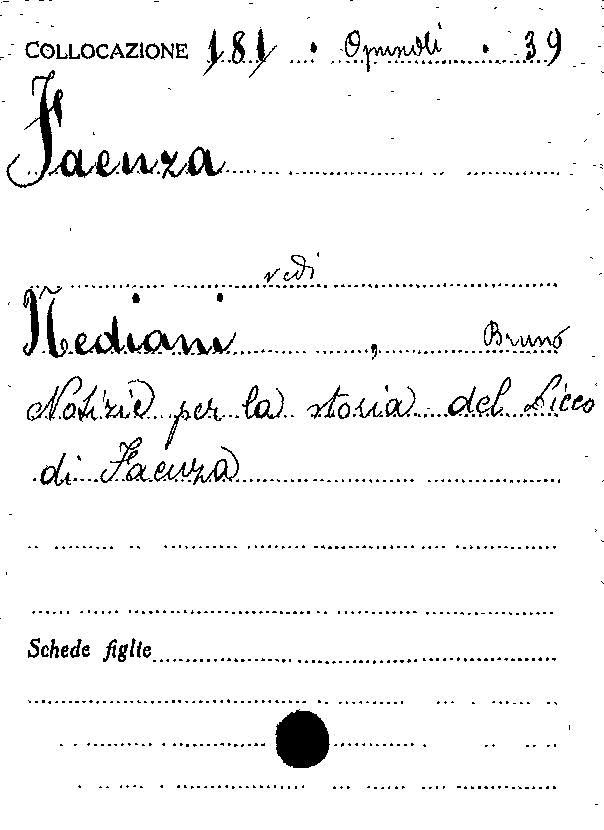 COLLOCAZIONE 181 . Opuscoli . 39
Faenza
vedi
Nediani , Bruno
Notizie per la storia del Liceo
di Faenza
Schede figlie